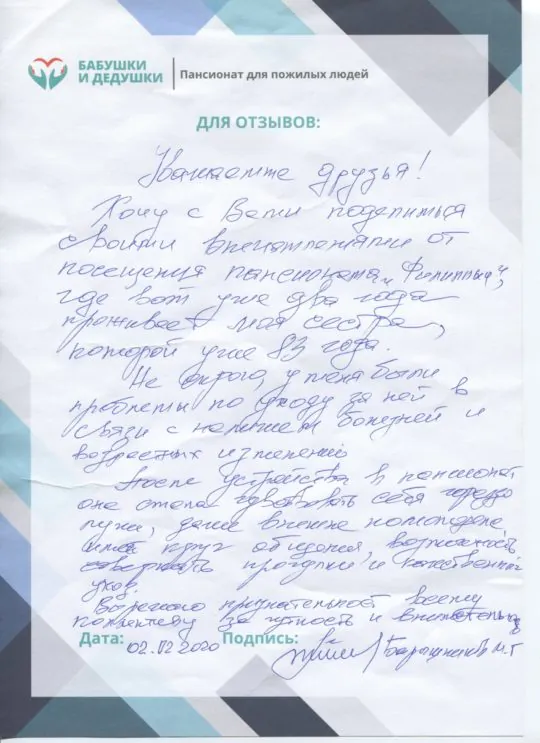 БАБУШКИ
И ДЕДУШКИ
Пансионат для пожилых людей
ДЛЯ ОТЗЫВОВ:
Уважаемые друзья!
Хочу с Вами поделиться
своими впечатлениями от
посещения пансионата „Филиппья",
где вот уже два года
проживает моя сестра,
которой уже 83 года.
Не скрою, у меня были
проблемы по уходу за ней в
связи с наличием болезней и
возрастных изменений
После устройства в пансионат
она стала чувствовать себя гораздо
лучше, даже внешне помолодела
имея круг общения, возможность
совершать прогулки и качественный
уход.
Выражаю признательность всему
коллективу за чуткость и внимательн
Дата: 02.02.2020 Подпись:
М.Г